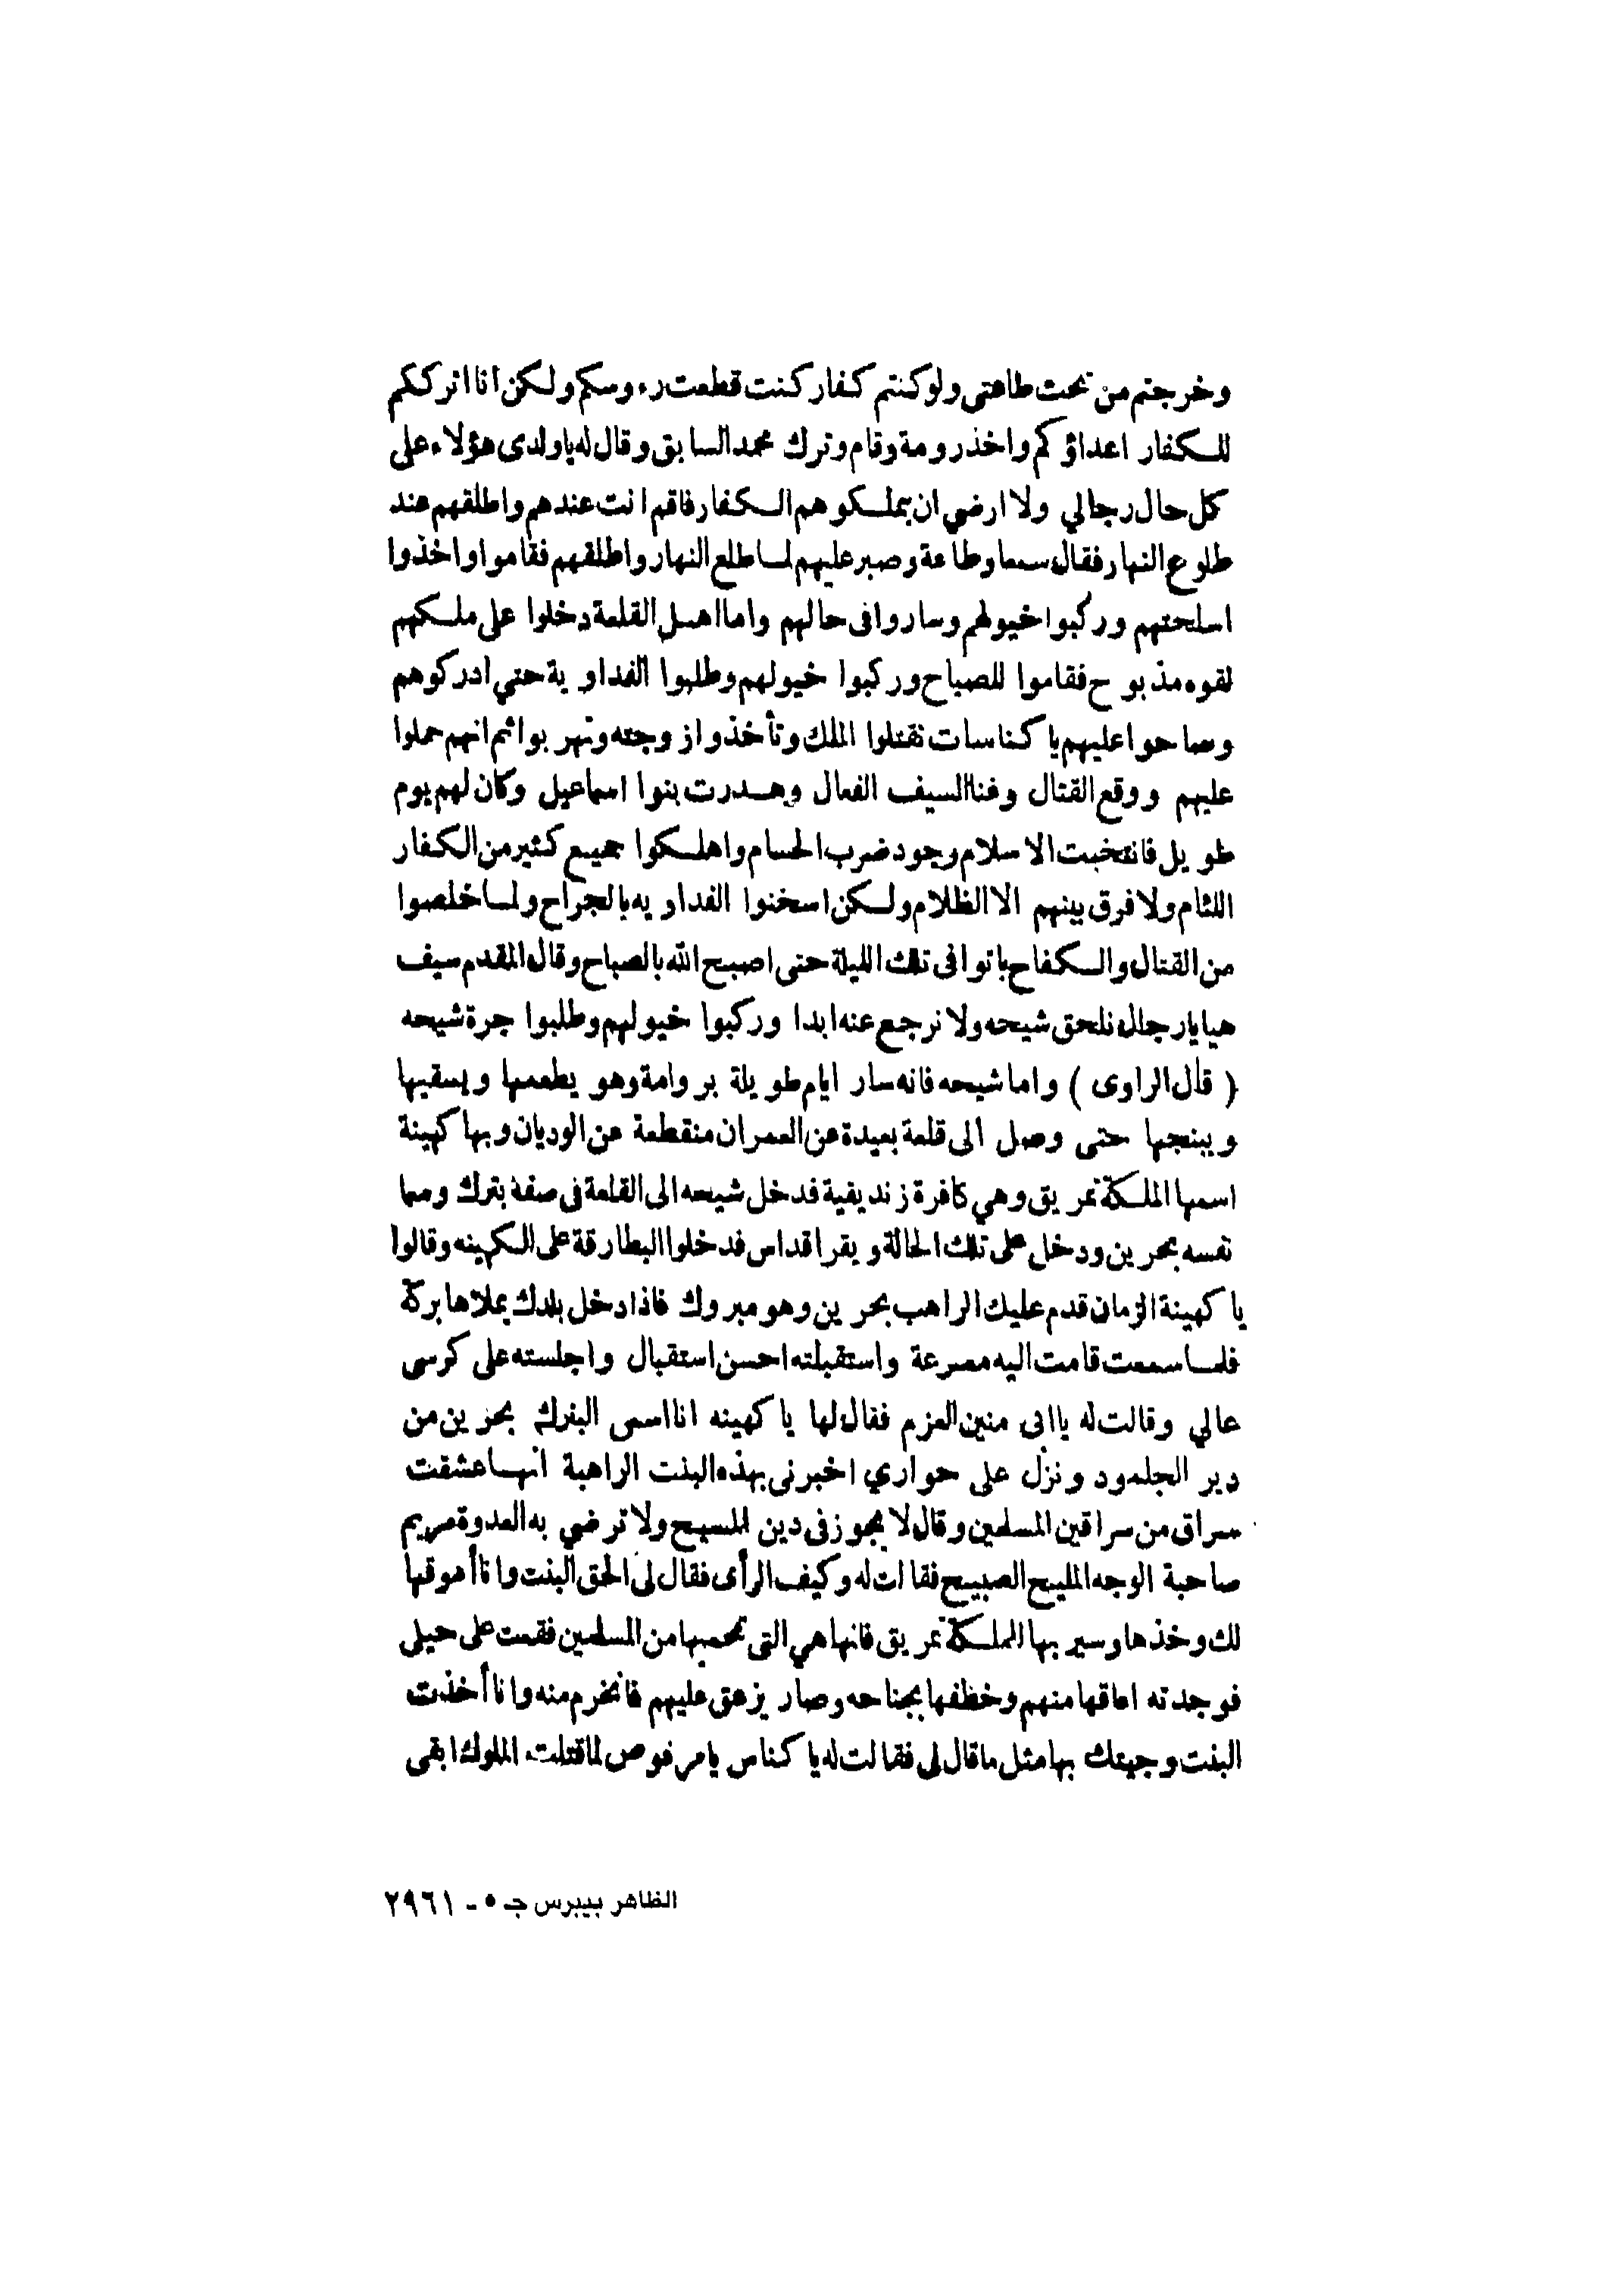 وخرجتم من تحت طاعتى ولو كنتم كفار كنت قطعت رءوسكم ولكن انا اترككم
للكفار اعداؤكم واخذ رومة وقام وترك محمد السابق وقال له ياولدى هؤلاء على
كل حال رجالي ولا ارضي ان يملكوهم الكفار فاقم انت عندهم واطلقهم عند
طلوع النهار فقال سمعا وطاعة وصبر عليهم لما طلع النهار واطلقهم فقاموا واخذوا
اسلحتهم وركبوا خيولهم وساروا فى حالهم واما اهل القلعة دخلوا على ملكهم
لقوه مذبوح فقاموا للصباح وركبوا خيولهم وطلبوا الفداوية حتي ادركوهم
وصاحوا عليهم يا كناسات تقتلوا الملك وتأخذوا زوجته وتهربوا ثم انهم حملوا
عليهم ووقع القتال وغنا السيف الفعال وهدرت بنوا اسماعيل وكان لهم يوم
طويل فانتخبت الاسلام وجود ضرب الحسام واهلكوا جميع كثير من الكفار
اللئام ولا فرق بينهم الا الظلام ولكن اسخنوا الفداويه بالجراح ولما خلصوا
من القتال والكفاح باتوا فى تلك الليلة حتى اصبح الله بالصباح وقال المقدم سيف
هيا يارجال نلحق شيحه ولا نرجع عنه ابدا وركبوا خيولهم وطلبوا جرة شيحه
( قال الراوى ) واما شيحه فانه سار ايام طويلة بروامة وهو يطعمها ويسقيها
ويبنجها حتى وصل الى قلعة بعيدة عن العمران منقطعة عن الوديان وبها كهينة
اسمها الملكة تمريق وهي كافرة زنديقية فدخل شيحه الى القلعة فى صفة بترك وسما
نفسه بحرين ودخل على تلك الحالة ويقرا قداس فدخلوا البطارقة على الكهينه وقالوا
يا كهينة الزمان قدم عليك الراهب بحرين وهو مبروك فاذا دخل بلدك يملاها بركة
فلما سمعت قامت اليه مسرعة واستقبلته احسن استقبال واجلسته على كرسى
عالي وقالت له ياابى منين العزم فقال لها يا كهينه انا اسمى البترك بحرين من
دير الجلمود ونزل على حواري اخبرنى بهذه البنت الراهبة انها عشقت
سراق من سراقين المسلمين وقال لا يجوز فى دين المسيح ولا ترضي به العدوة مريم
صاحبة الوجه المليح الصبيح فقالت له وكيف الرأى فقال لى الحق البنت وانا أعوقها
لك وخذها وسير بها للملكة تمريق فانها هي التى تحميها من المسلمين فقمت على حيلى
فوجدته اعاقها منهم وخطفها بجناحه وصار يزعق عليهم فانخرم منه وانا أخذت
البنت وجيتك بها مثل ما قال لى فقالت له يا كناس يا مرفوص لما قتلت الملوك ابقى
الظاهر بيبرس جـ ٥ - ٢٩٦١